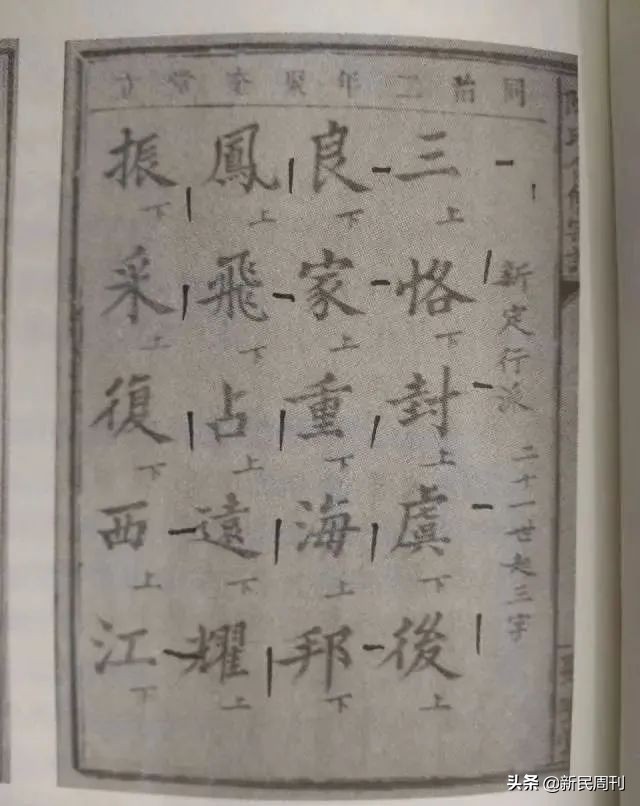 同治二年聚奎堂立
新定行派 二十一世起三字
三上恪下封上虞下後上
良下家上重下海上邦下
鳳上飛下占上遠下耀上
振下采上復下西上江下
头条 @新民周刊